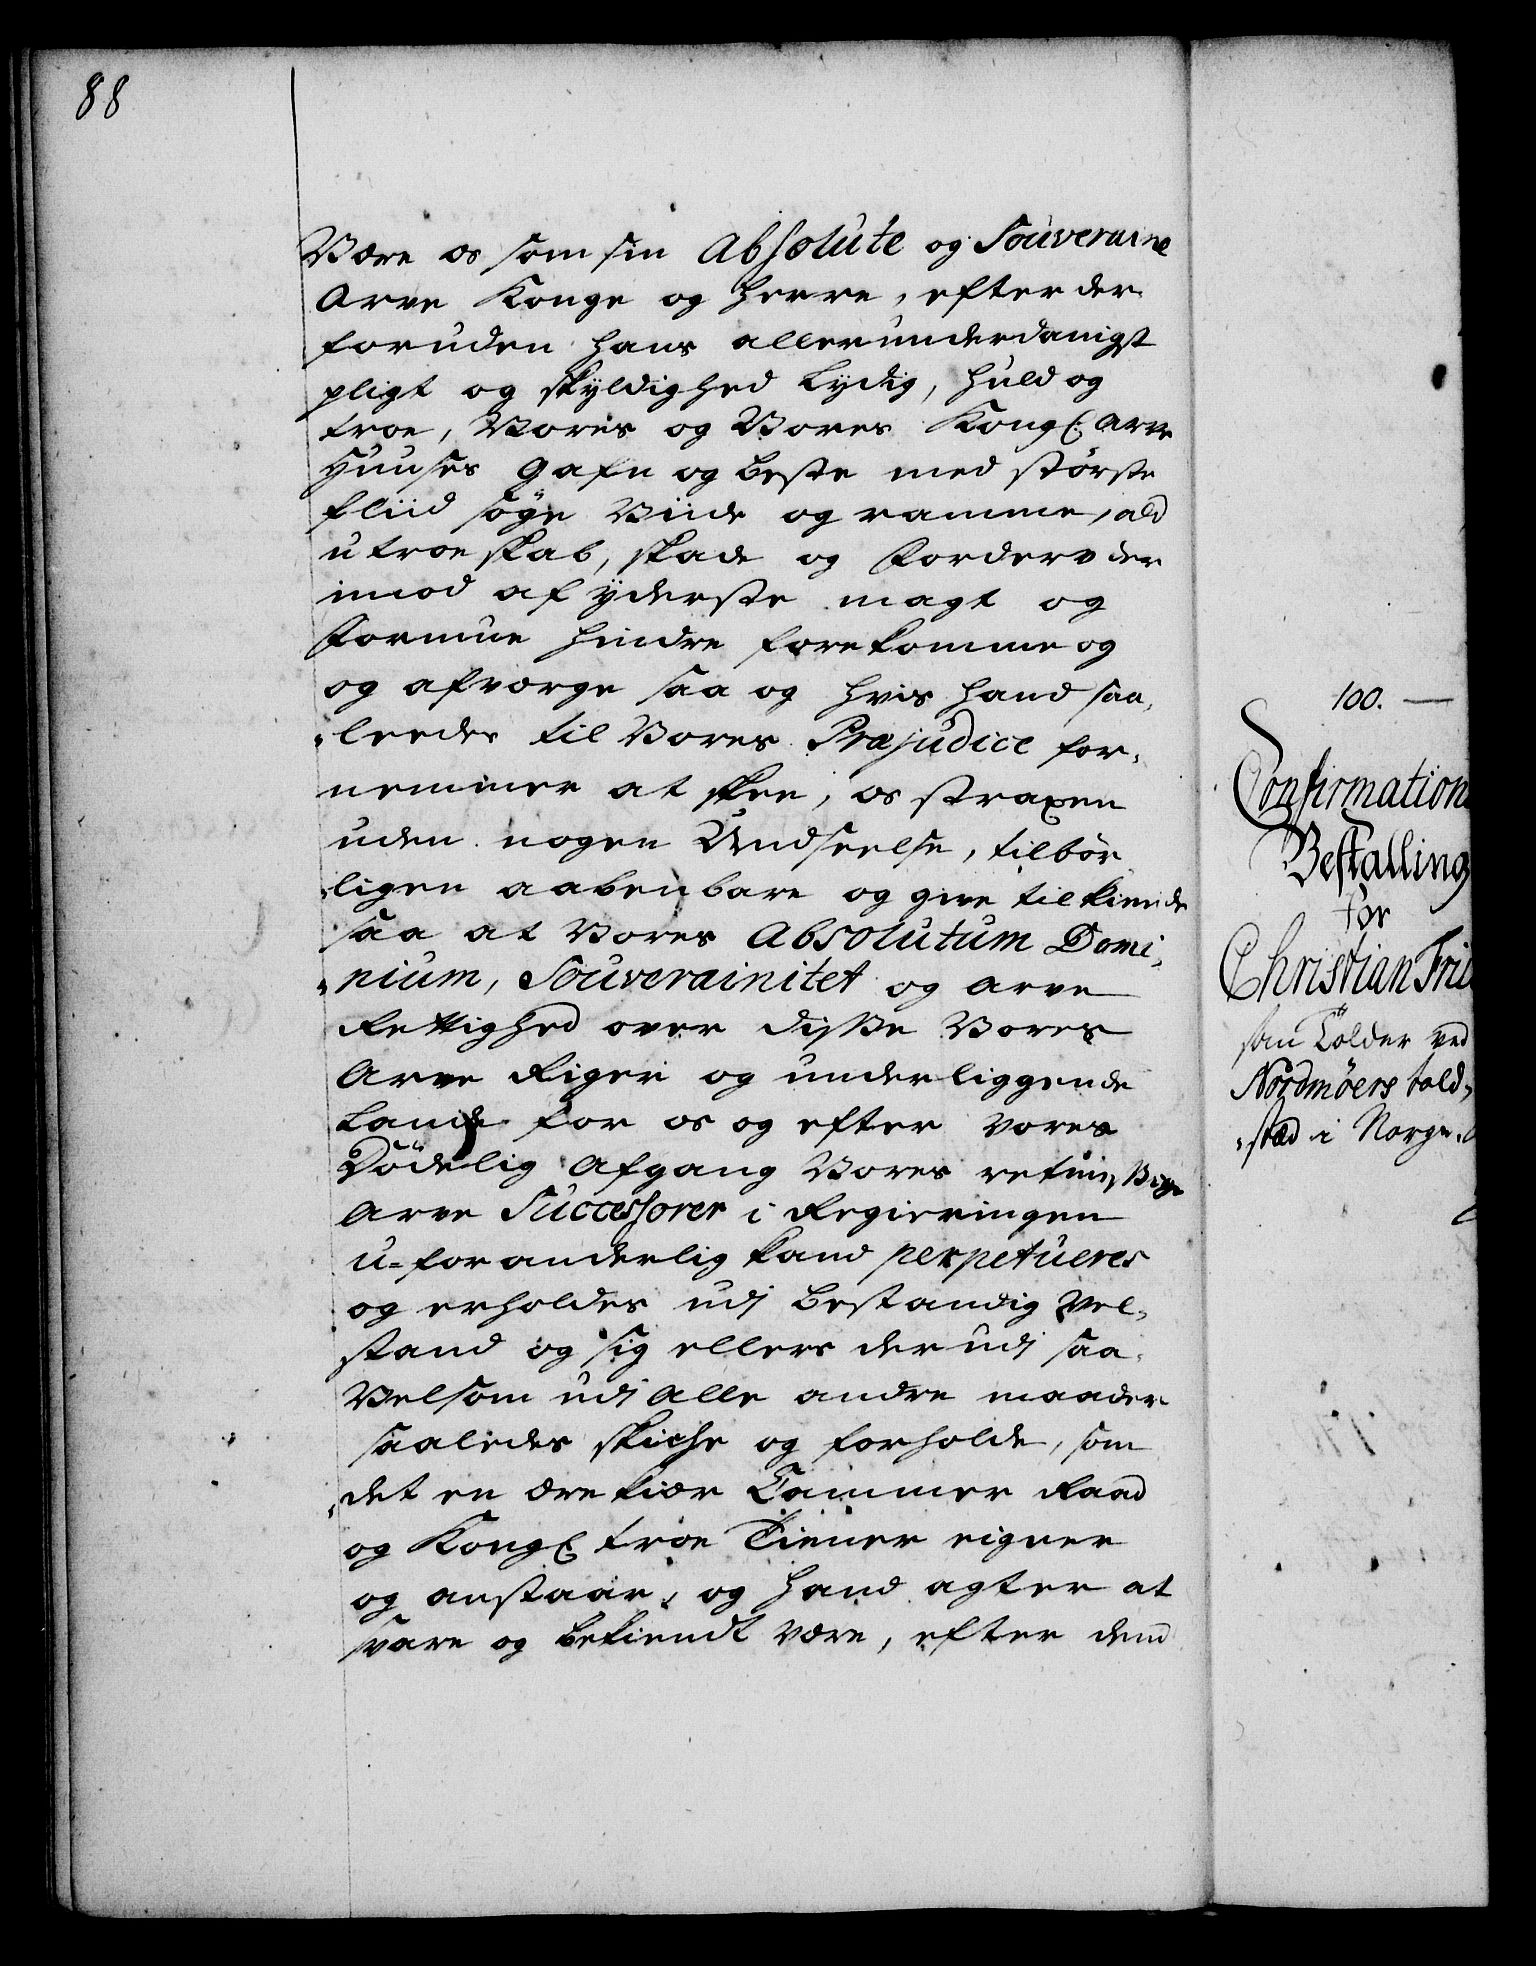 88
Være os som sin Absolute og Souveraine
Arve Konge og Herre, efter der
foruden hans allerunderdanigst
pligt og skyldighed lydig, huld og
troe, Vores og Vores Kongl: Arve
Huuses Gafn og beste med største
fliid søge Viide og ramme, ald
utroeskab, skade og Forderv der
imod af yderste magt og
Formue hindre forekomme og
og afværge saa og hvis hand saa,
„leedes til Vores Præjudice for,
nemmer at skee, os straxen
uden nogen Undseelse, tilbør
„ligen aabenbare og give tilkiende
saa at Vores Absolutum Domi„
„nium, Souverainitet og Arve
Rettighed over disse Vores
Arve Riger og underliggende
Lande for os og efter Vores
Dödelig Afgang Vores retmessige
Arve Successorer i Regieringen
u-foranderlig kand perpetueres
og erholdes udj bestandig Vel„
stand og sig ellers derudj saa„
Velsom udj Alle andre maader
saaledes skiche og forholde, som
„det en ærekiær Cammer Raad
og Kongl troe Tiener eigner
og anstaar, og hand agter at
svare og bekiendt være, efter dend
100. —
Confirmation
Bestalling
for
Christian Frie
som Tolder ved
Nordmöers told„
„sted i Norge.